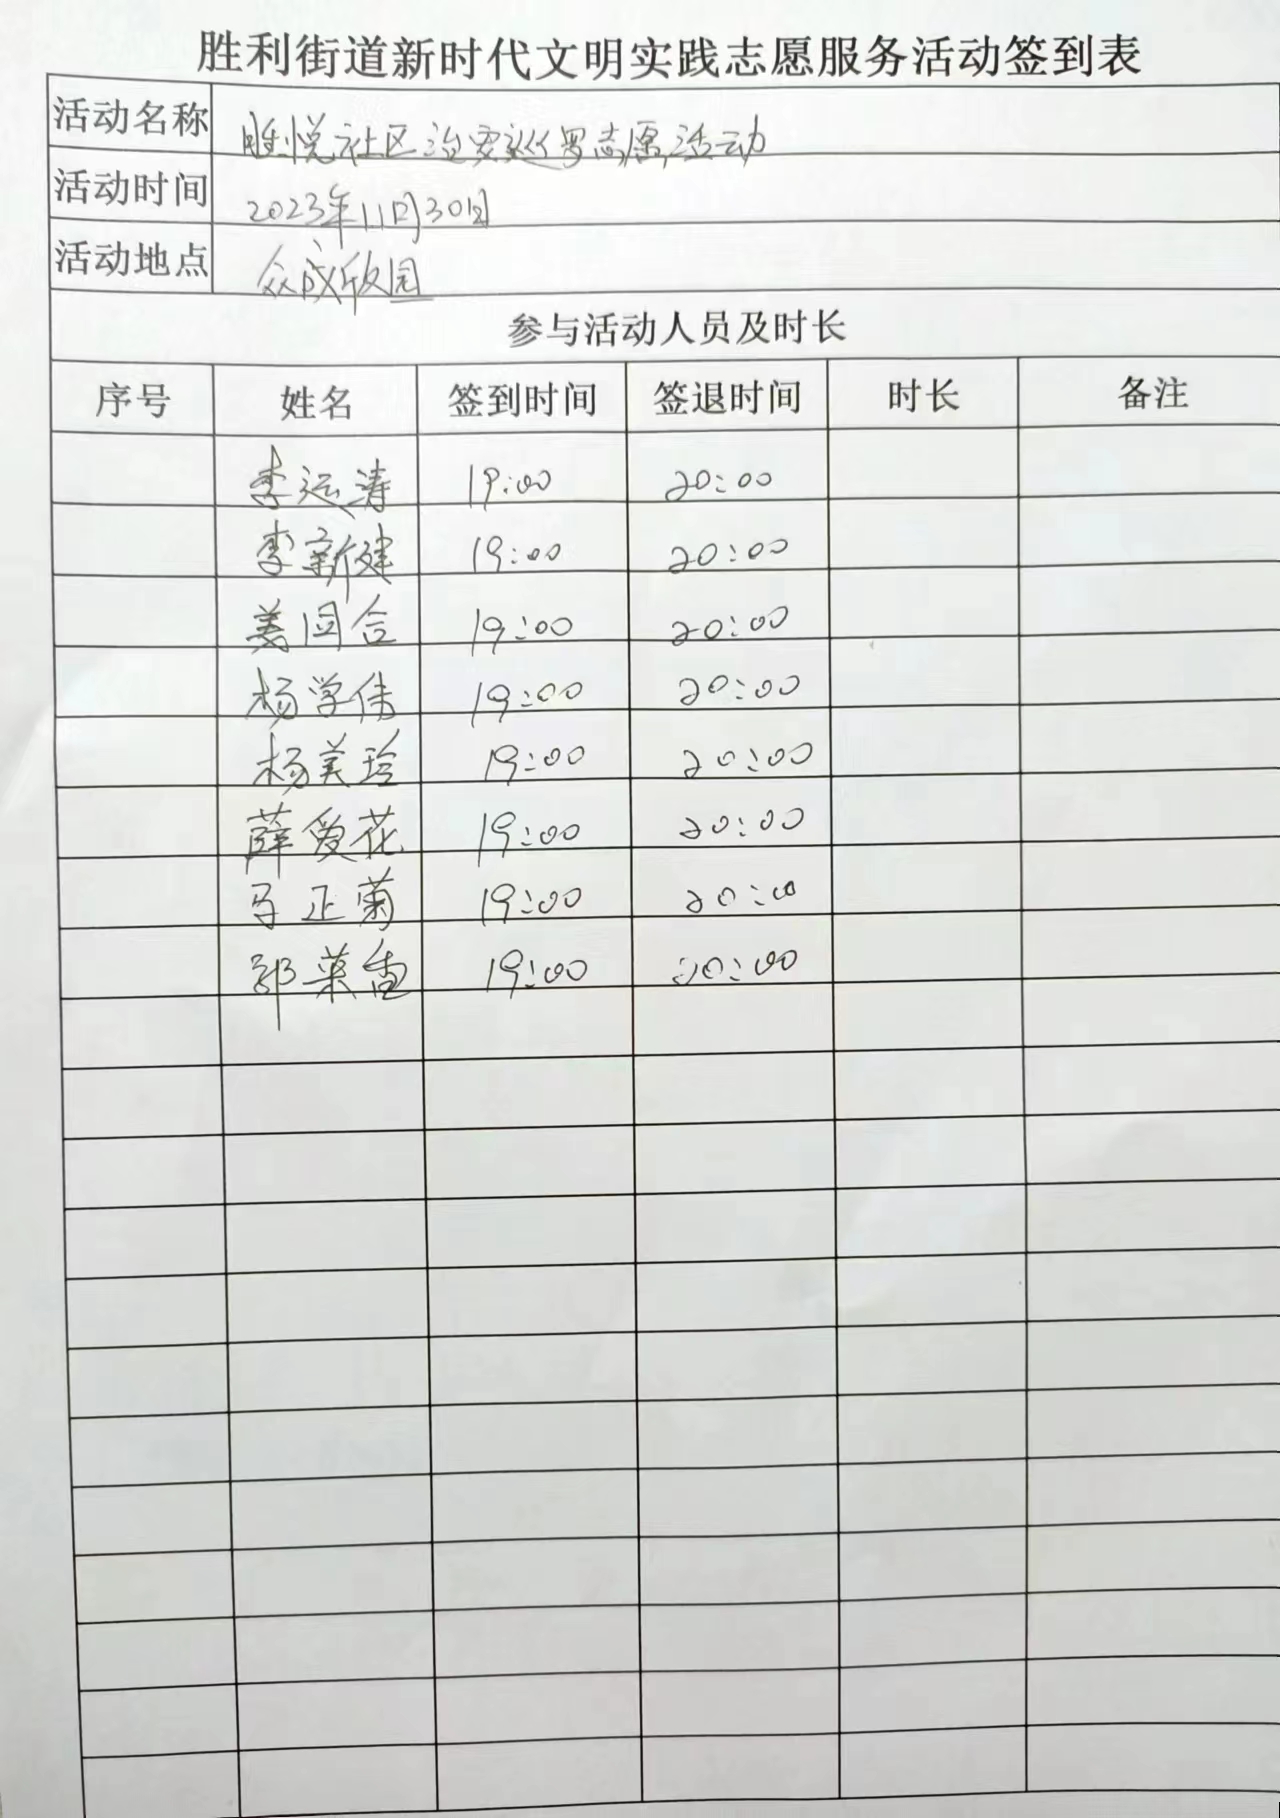 胜利街道新时代文明实践志愿服务活动签到表
活动名称 胜悦社区治安巡逻志愿活动
活动时间 2023年11月30日
活动地点 众成欣园
参与活动人员及时长
序号 姓名 签到时间 签退时间 时长 备注
李运涛 19:00 20:00
李新建 19:00 20:00
姜国合 19:00 20:00
杨学伟 19:00 20:00
杨美玲 19:00 20:00
薛爱花 19:00 20:00
马正菊 19:00 20:00
郭菜香 19:00 20:00